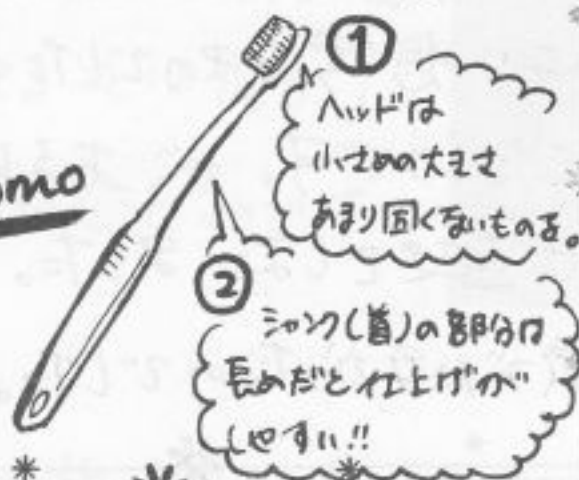 ①
ヘッドは
小さめの大きさ
あまり固くないものを。
omo
②
シャンク(首)の部分は
長めだと仕上げが
しやすい!!